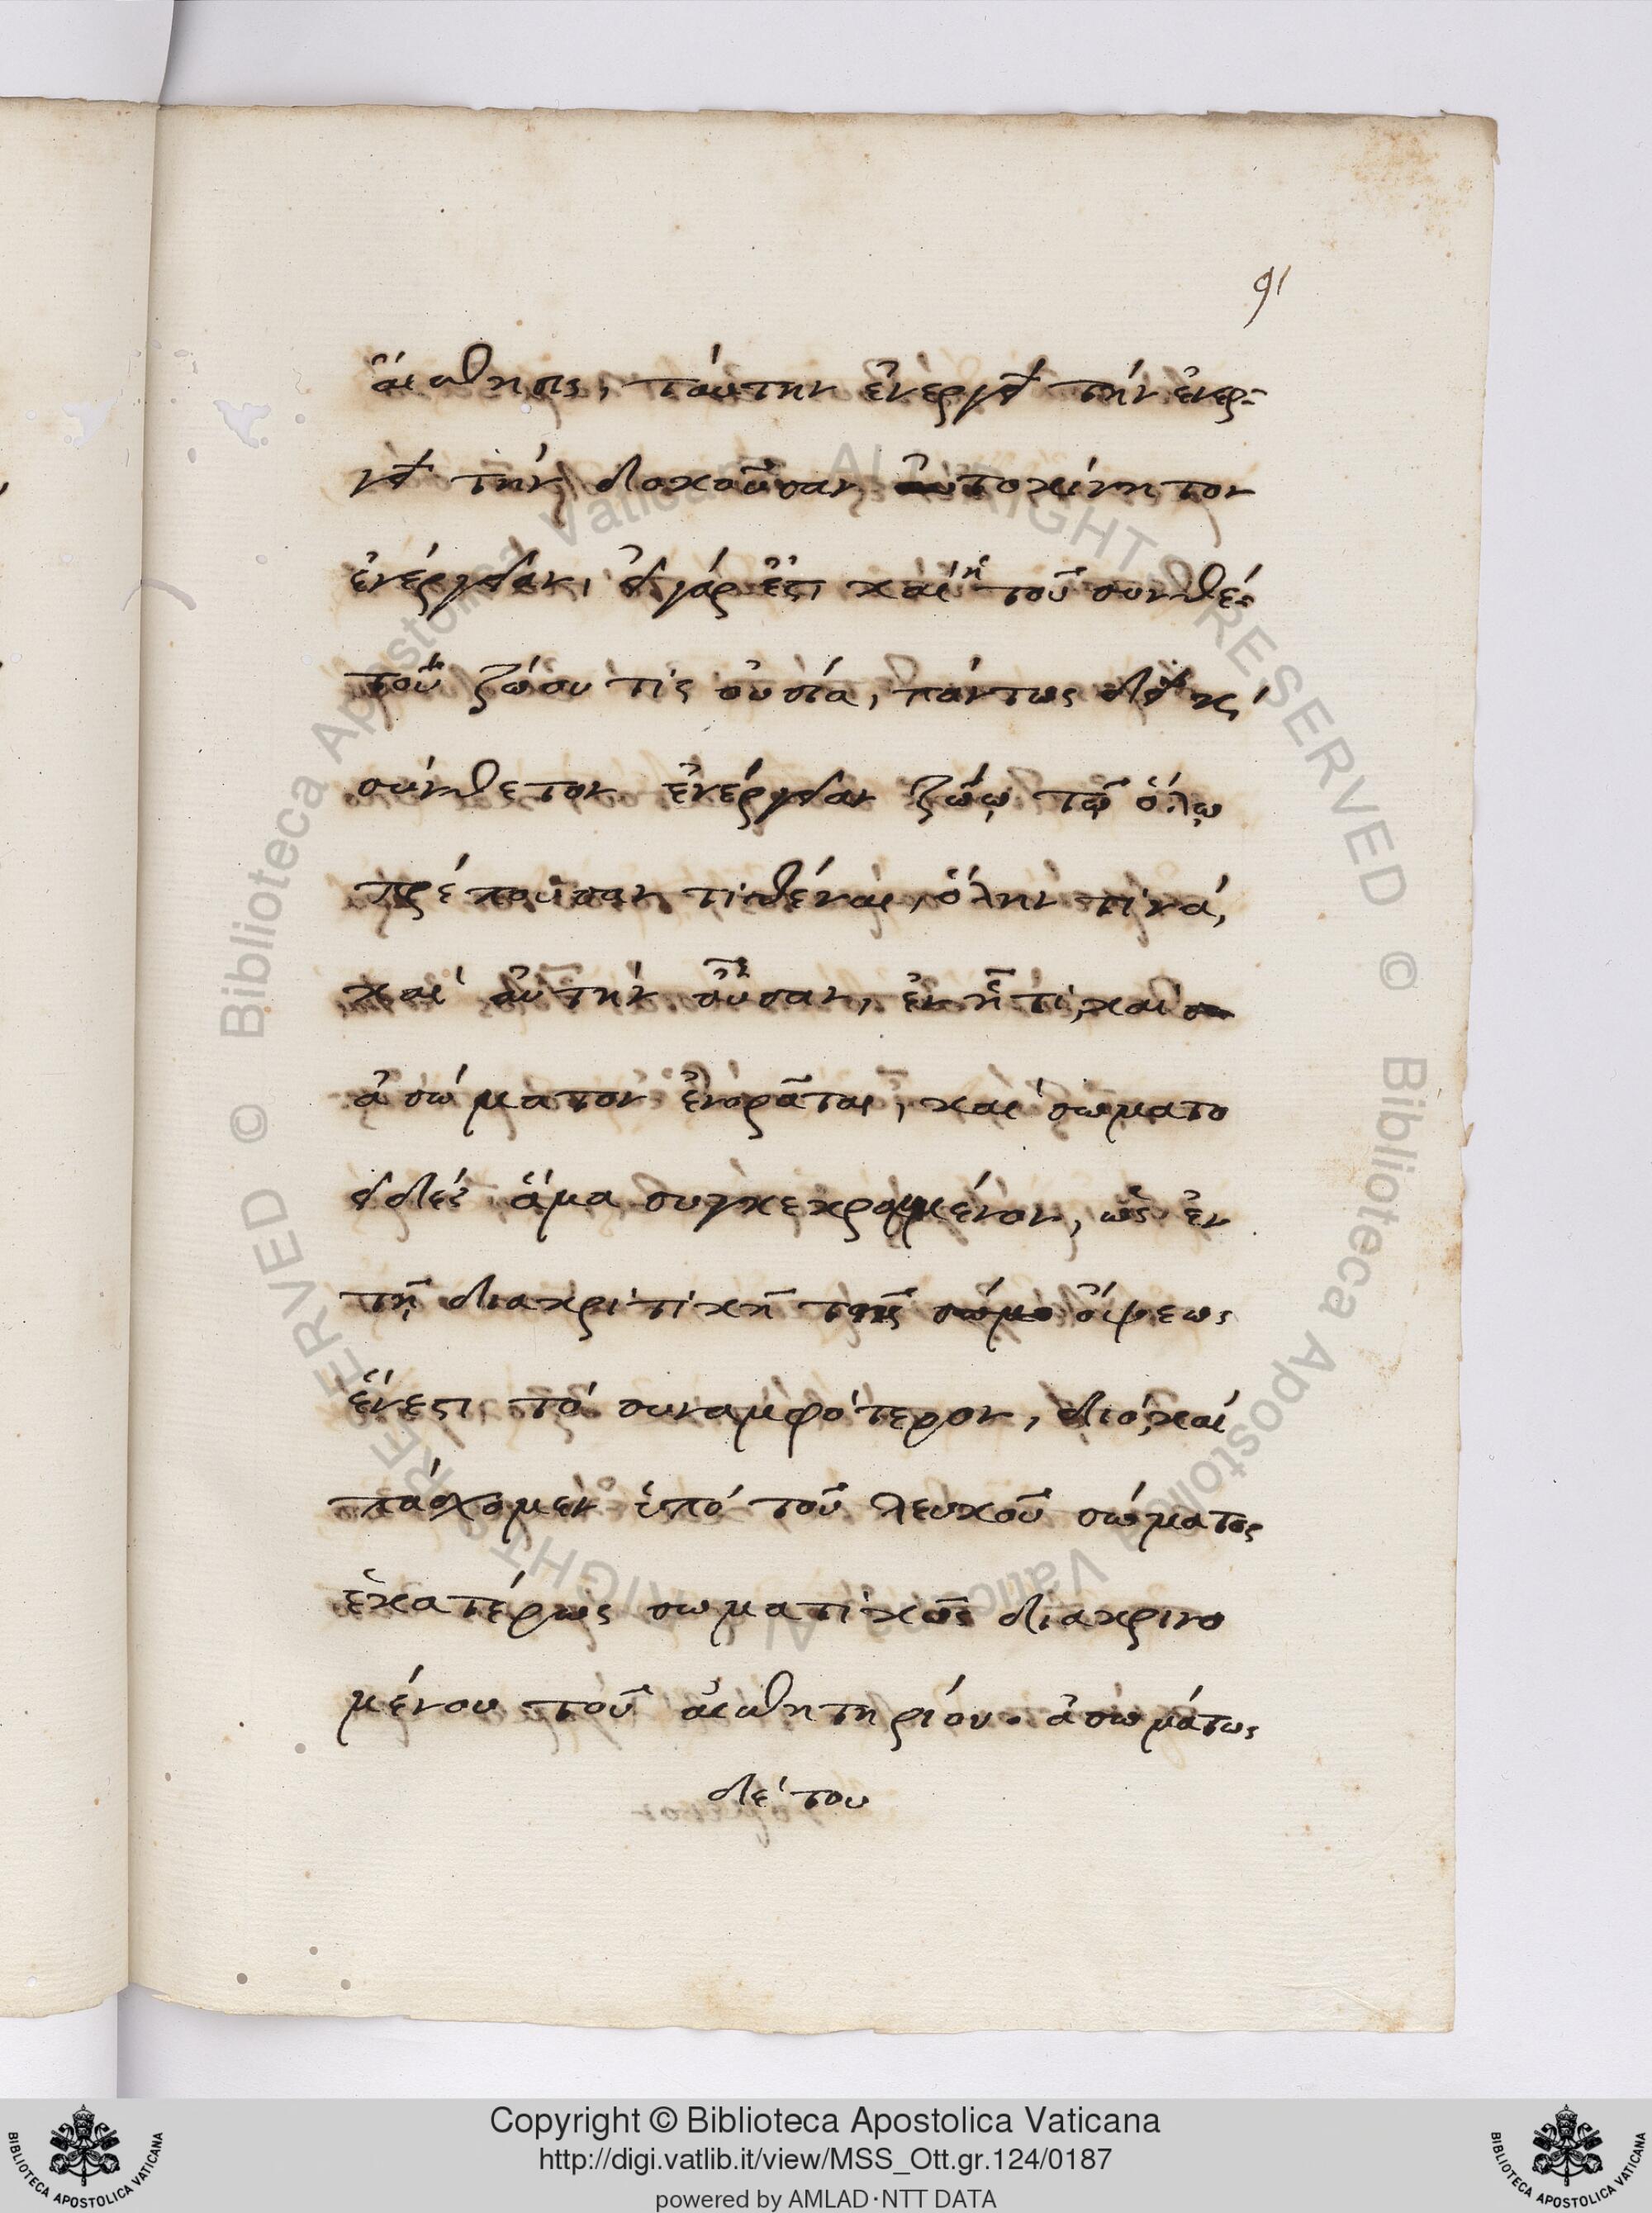 91
αἴσθησις, ταύτην ἐνεργεῖ τὴν ἐνερ-
γεῖ τὴν δοκοῦσαν αὐτοκίνητον
ἐνέργειαν, εἰ γάρ ἐστι καὶ ἡ τοῦ συνθέ-
του ζώου τὶς οὐσία, πάντως δεῖ κ,
σύνθετον ἐνέργειαν ζώῳ τῷ ὅλῳ
πρέπουσαν τιθέναι, ὅλην τινά,
καὶ αὐτὴν οὖσαν, ἐν ᾗ τί, καὶ
ἀσώματον ἐνορᾶται, καὶ σωματο
ειδὲς ἅμα συγκεκραμένον, ὡς ἐν
τῇ διακριτικῇ τῆς ὄψεως
ἔνεστι τὸ συναμφότερον, διὸ, καὶ
πάσχομεν ὑπὸ τοῦ λευκοῦ σώματος
ἑκατέρως σωματικῶς διακρινο
μένου τοῦ αἰσθητηρίου. ἀσωμάτως
δὲ του
Copyright © Biblioteca Apostolica Vaticana
http://digi.vatlib.it/view/MSS_Ott.gr.124/0187
powered by AMLAD·NTT DATA
BIBLIOTECA APOSTOLICA VATICANA
BIBLIOTECA APOSTOLICA VATICANA
© Biblioteca Apostolica Vaticana ALL RIGHTS RESERVED © Biblioteca Apostolica Vaticana ALL RIGHTS RESERVED